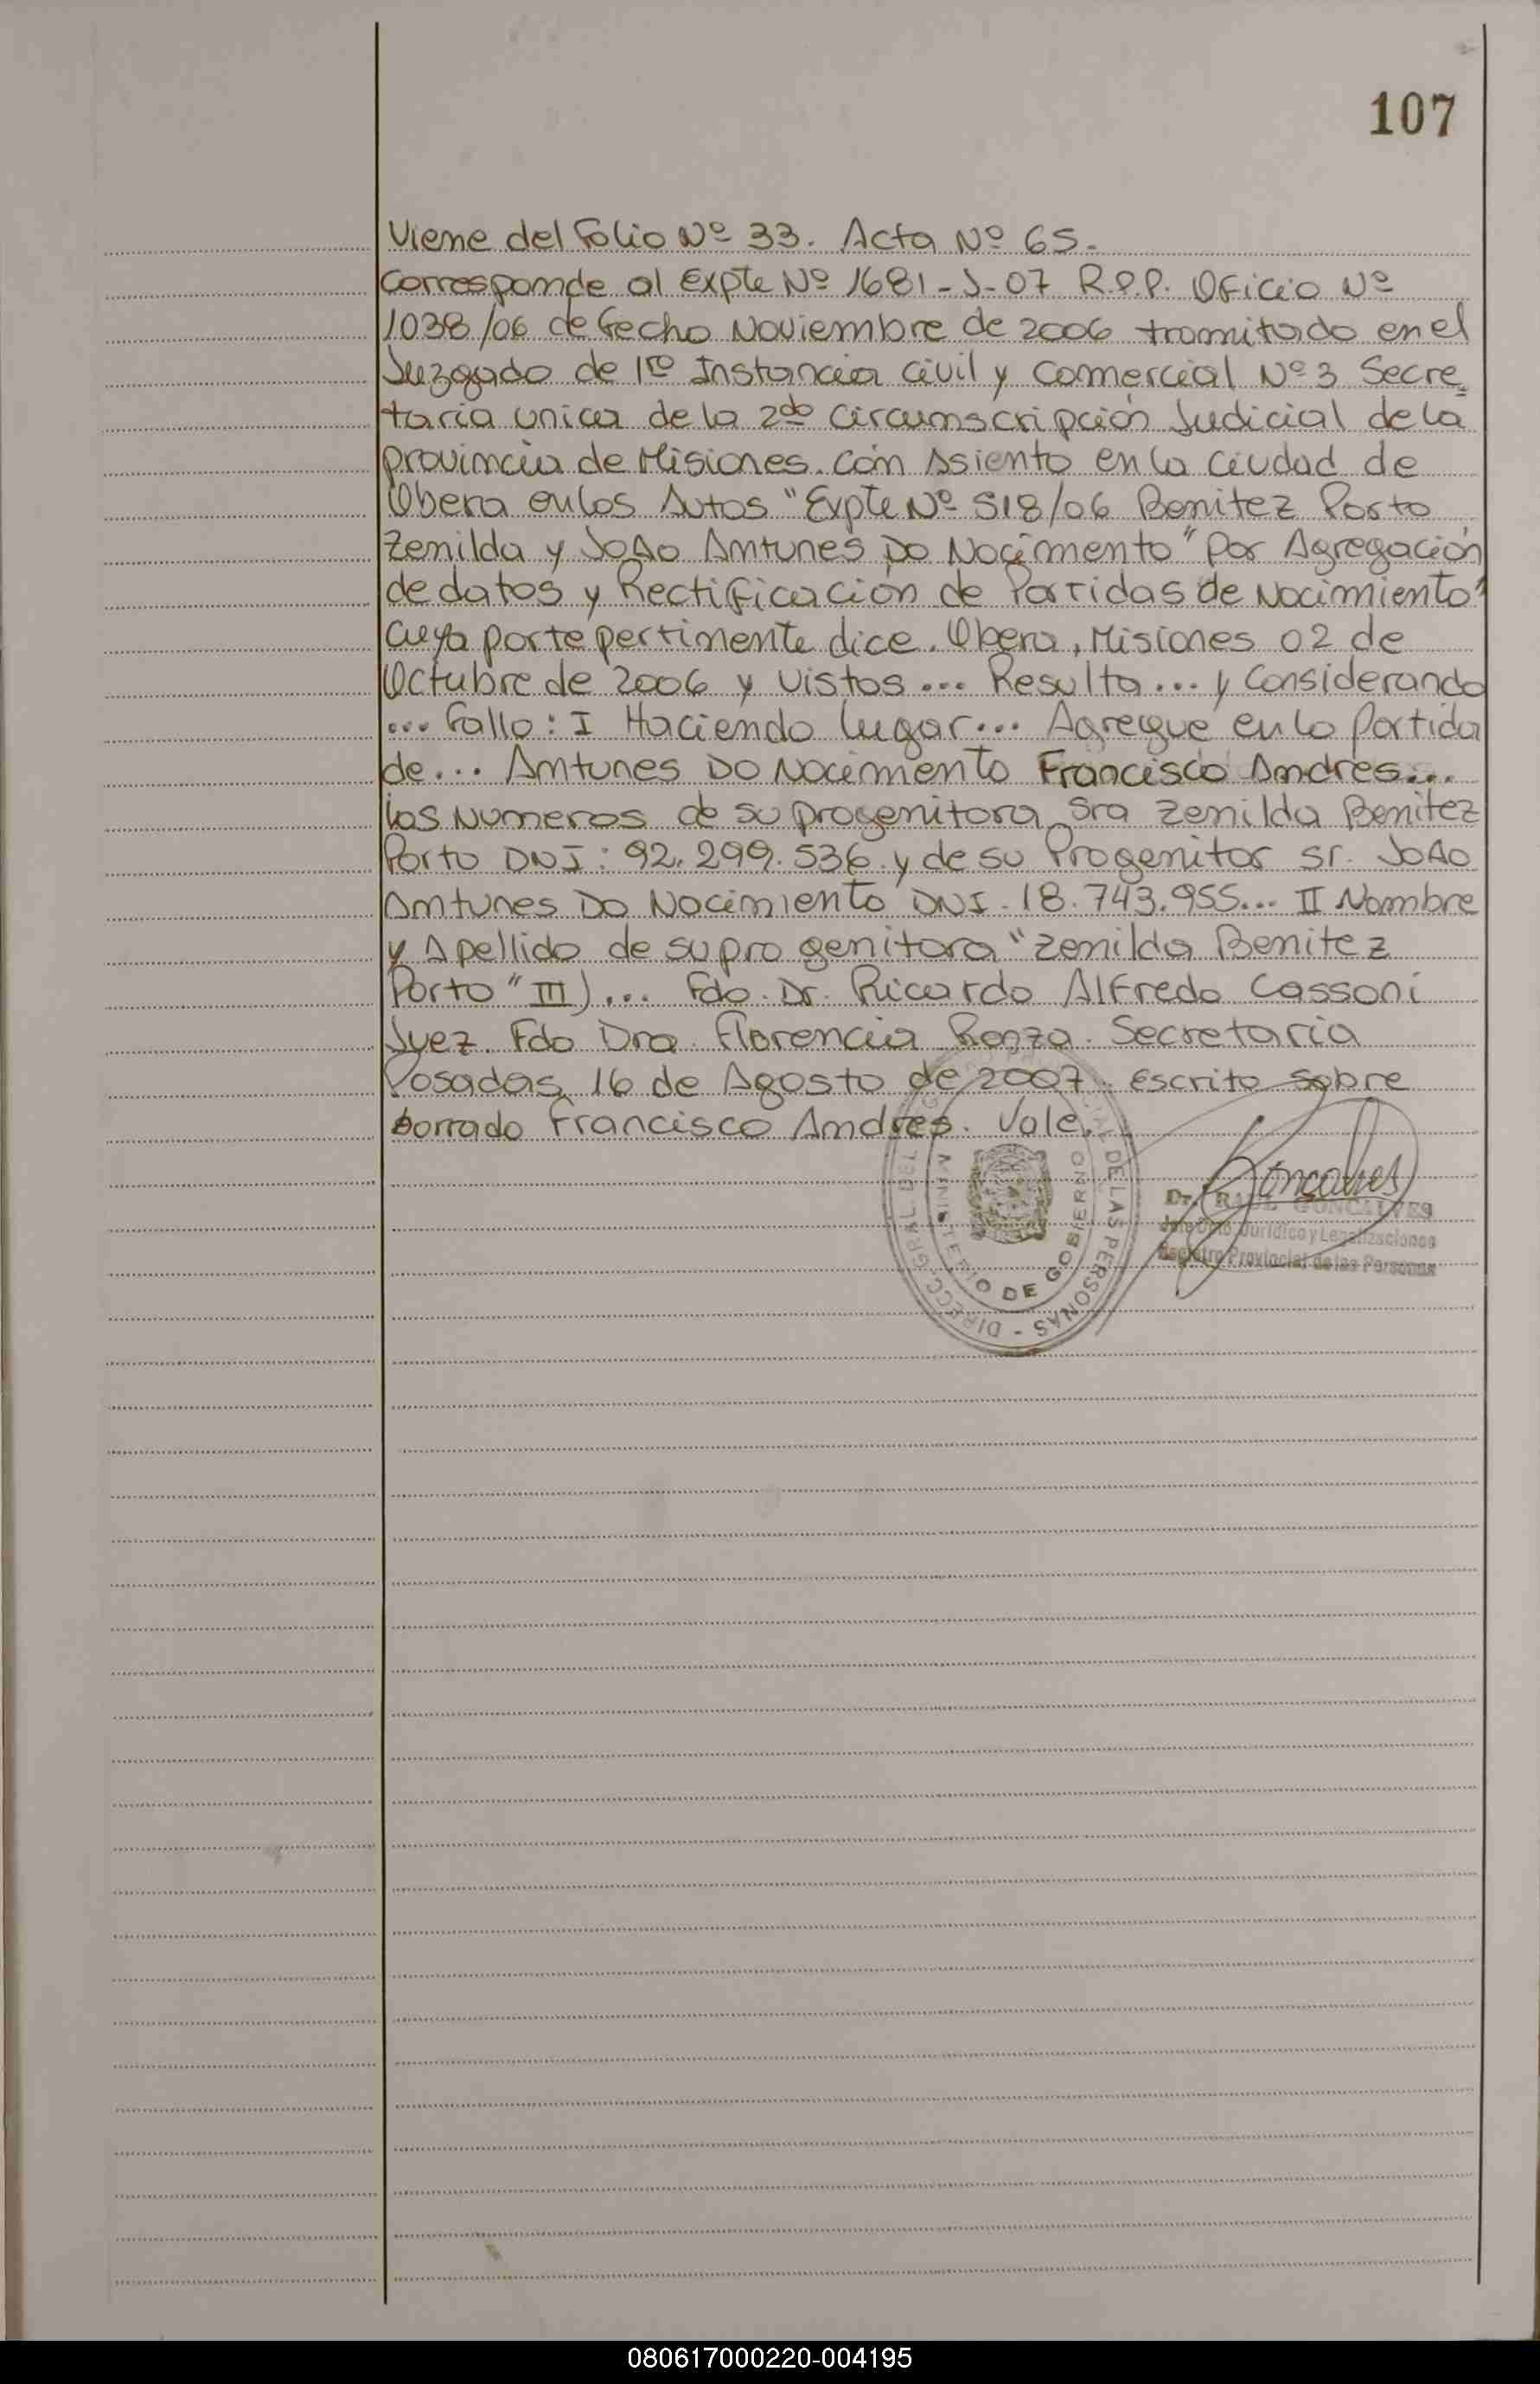 107
Viene del Folio Nº 33. Acta Nº 65.
Corresponde al Expte Nº 1681-J-07 R.P.P. Oficio Nº
1038/06 de fecha Noviembre de 2006 tramitado en el
Juzgado de 1ra Instancia Civil y Comercial Nº 3 Secre=
taria unica de la 2da Circunscripción Judicial de la
provincia de Misiones. Con Asiento en la Ciudad de
Obera en los Autos "Expte Nº 518/06 Benitez Porto
Zenilda y Joao Antunes Do Nacimento" Por Agregación
de datos y Rectificación de Partidas de Nacimiento"
cuya parte pertinente dice. Obera, Misiones 02 de
Octubre de 2006 y Vistos... Resulta... y Considerando
... Fallo: I Haciendo lugar... Agregue en la Partida
de... Antunes Do Nacimento Francisco Andres...
los Numeros de su progenitora Sra Zenilda Benitez
Porto DNI: 92.299.536 y de su Progenitor Sr. Joao
Antunes Do Nacimiento DNI. 18.743.955... II Nombre
y Apellido de su pro genitora "Zenilda Benitez
Porto" III)... Fdo. Dr. Ricardo Alfredo Cassoni
Juez. Fdo Dra. Florencia Renza. Secretaria
Posadas, 16 de Agosto de 2007. Escrito sobre
borrado Francisco Andres. Vale.
DIRECC. GRAL DEL DE LAS PERSONAS -
MINISTERIO DE GOBIERNO
Goncalves
Dr. RAUL GONCALVES
Jefe Dpto. Jurídico y Legalizaciones
Registro Provincial de las Personas
080617000220-004195